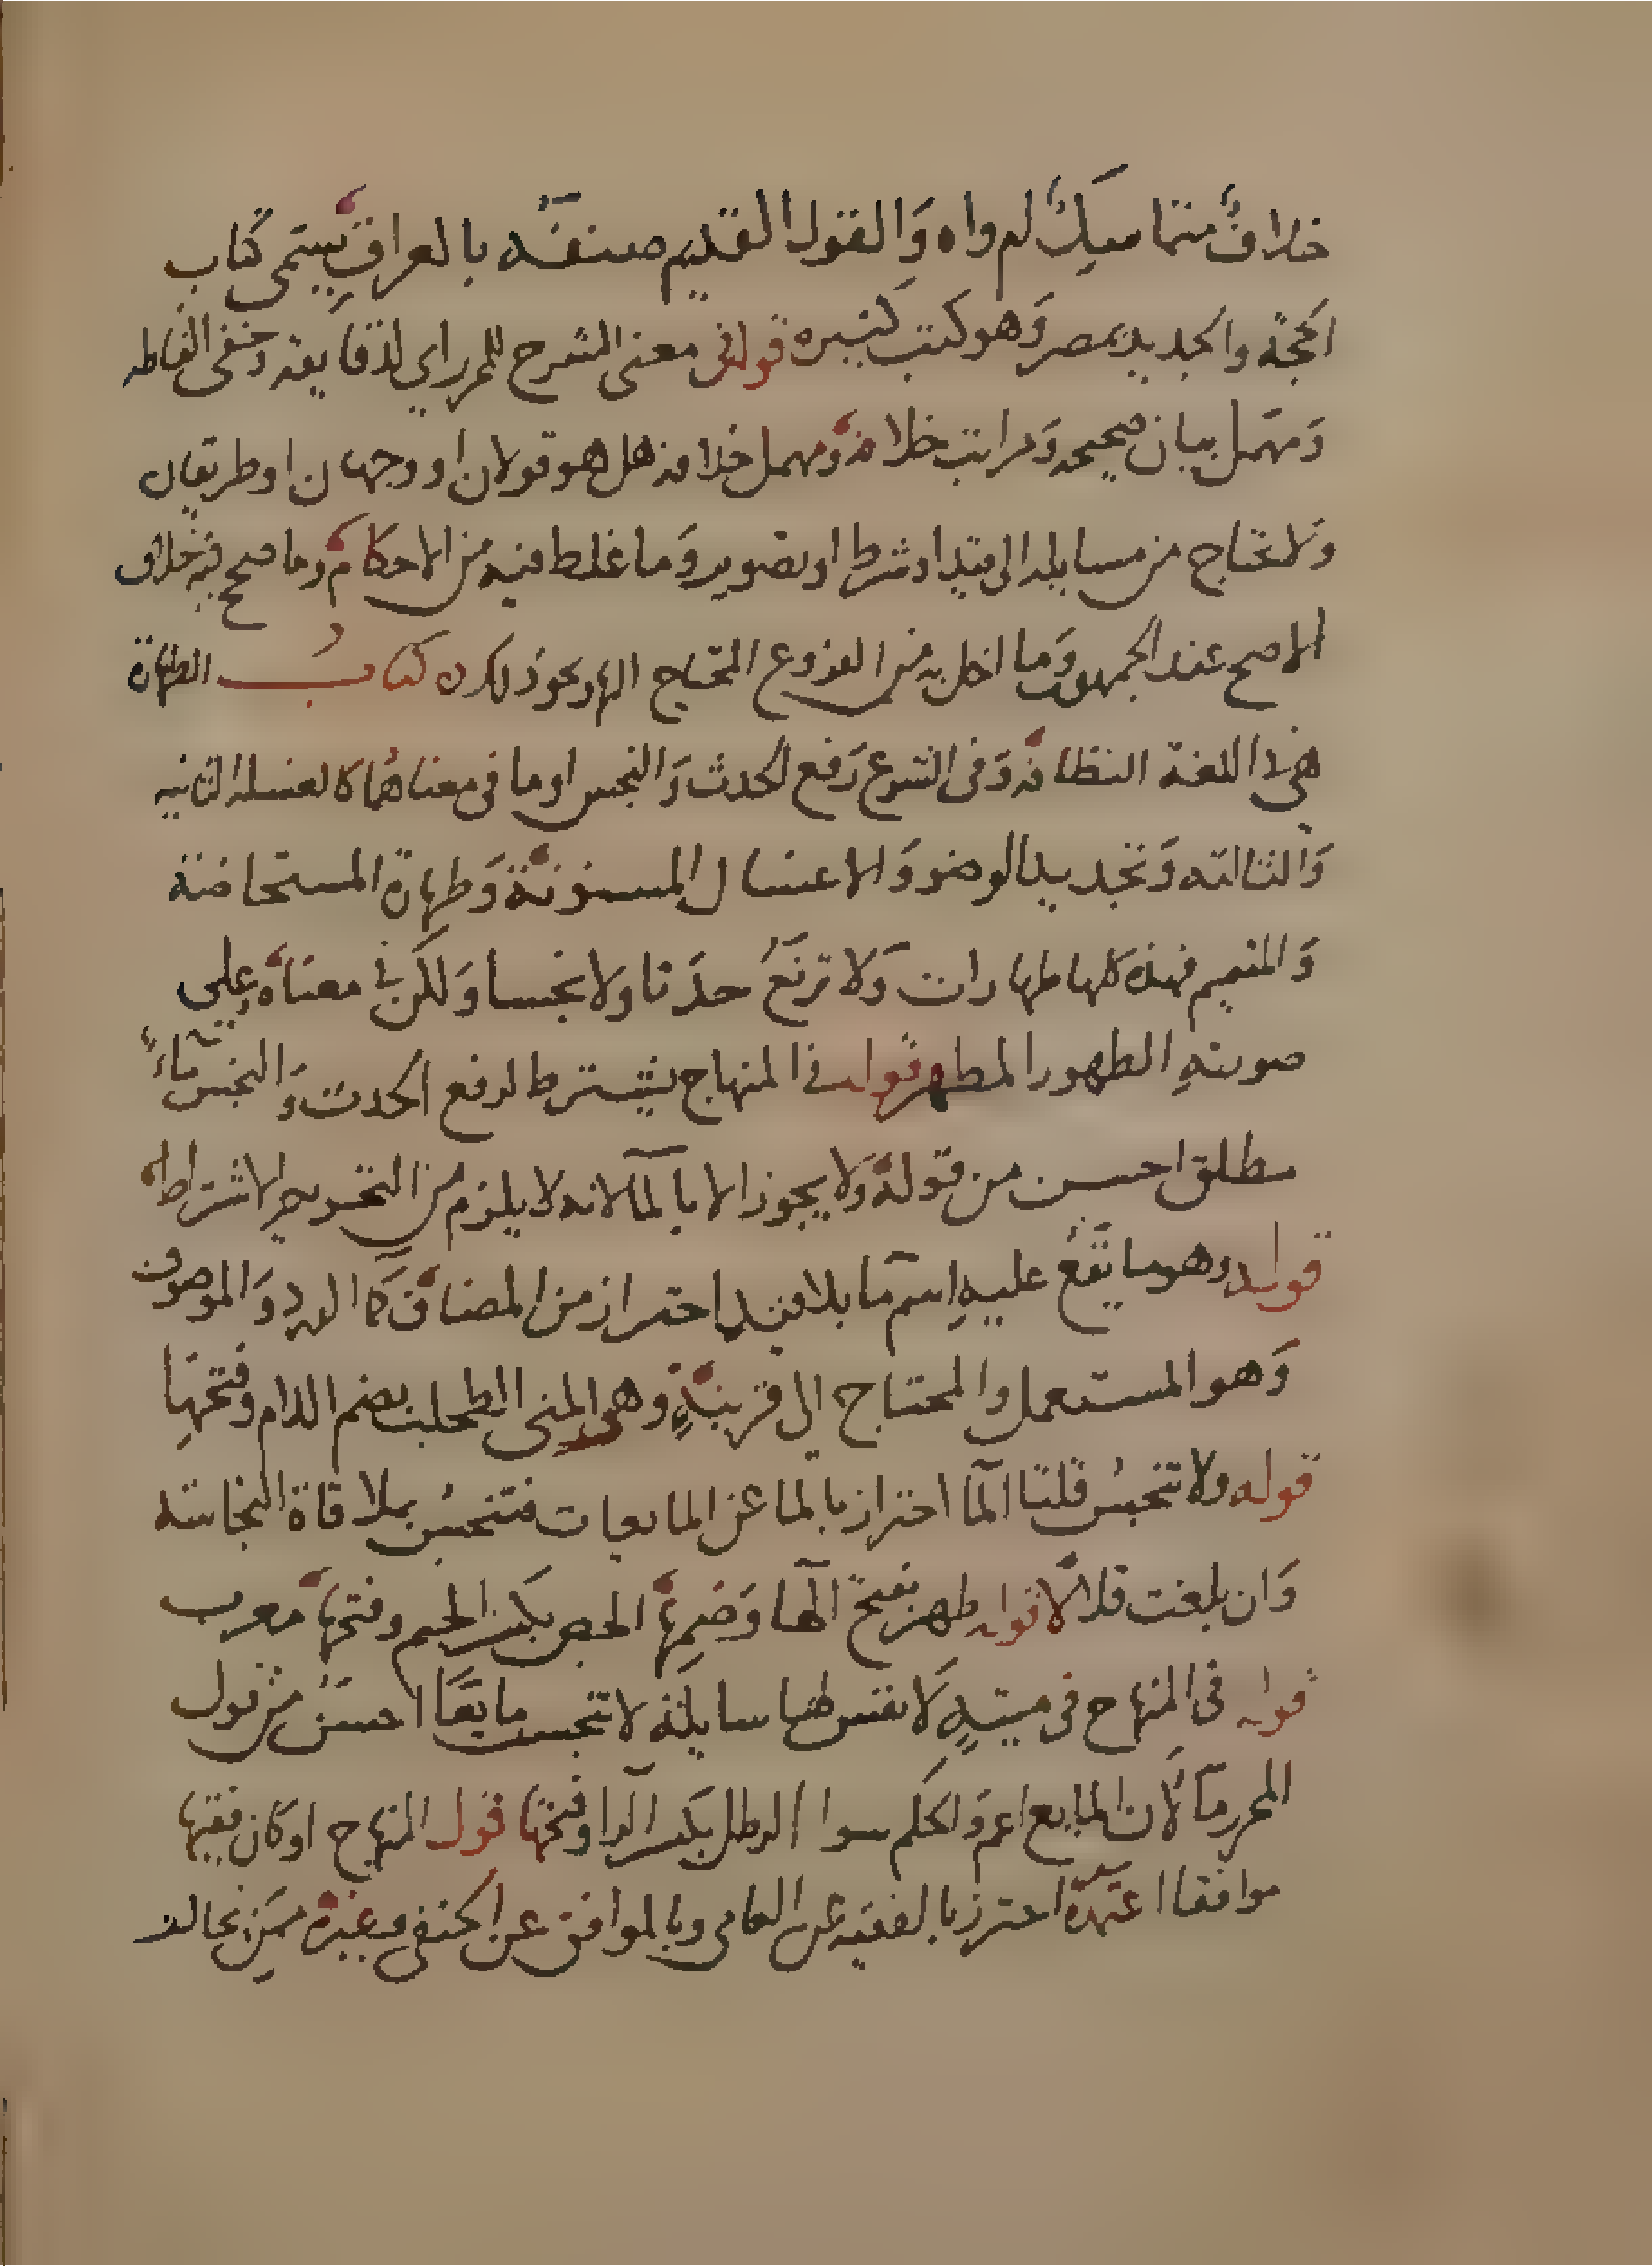 خلافٌ متماسكٌ لم واه وَالقول القديم صنفه بالعراق يسمى كتاب
الحجة والجديد بمصر وَهو كتب كثيره قولى فى معنى الشرح للمحرر اي لدقايقه وخفى الفاظه
وَمهمل بيان صحيحه وَمراتب خلافه ومهمل خلافه هل هو قولان او وجهان او طريقان
وَلا تحتاج من مسايله الى قيد او شرط او تصوير وَما غلط فيه من الاحكام وما صحح فيه خلاف
الاصح عند الجمهور وَما اخل به من الفروع المحتاج اليها ونحو ذلك كتاب الطهارة
هى فى اللغة النظافه وَفى الشرع رَفع الحدث وَالنجس او ما فى معناهما كالغسله الثانيه
وَالثالثه وَتجديد الوضو وَالاغتسال المسنونة وَطهارة المستحاضة
وَالتيمم فهذه كلها طهارات وَلا ترفعُ حدَثا ولا نجسا وَلكن فى معناه وعلى
صورته الطهور المطهر قوله فى المنهاج يشترط لرفع الحدث وَالنجس ماءٌ
مطلق احسن من قوله وَلا يجوز الا بالمآ لانه لا يلزم من التحريم الاشتراط
قوله وهو ما يقعُ عليه اسم مآ بلا قيد احتراز من المضاف كمآ الورد وَالموصوف
وَهو المستعمل والمحتاج الى قرينة وهو المنى الطحلب بضم اللام وفتحها
قوله ولا تنجسُ قلتا المآ احتراز بالما عن المايعات فتنجسُ بملاقاة النجاسة
وَان بلغت قلالًا قوله طهر بفتح الهآ وَضمها الجص بكسر الجيم وفتحها معرب
قوله فى المنهاج فى ميتةٍ لَا نفس لها سايلة لا تنجس مايعًا احسنُ من قول
المحرر مآ لَان المايع اعم وَالحكم سوا الرطل بكسر الرا وفتحها قول المنهاج او كان فقيها
موافقا اعتمده احترز بالفقيه عن العامى وبالموافق عن الحنفى وغيره ممن يخالف